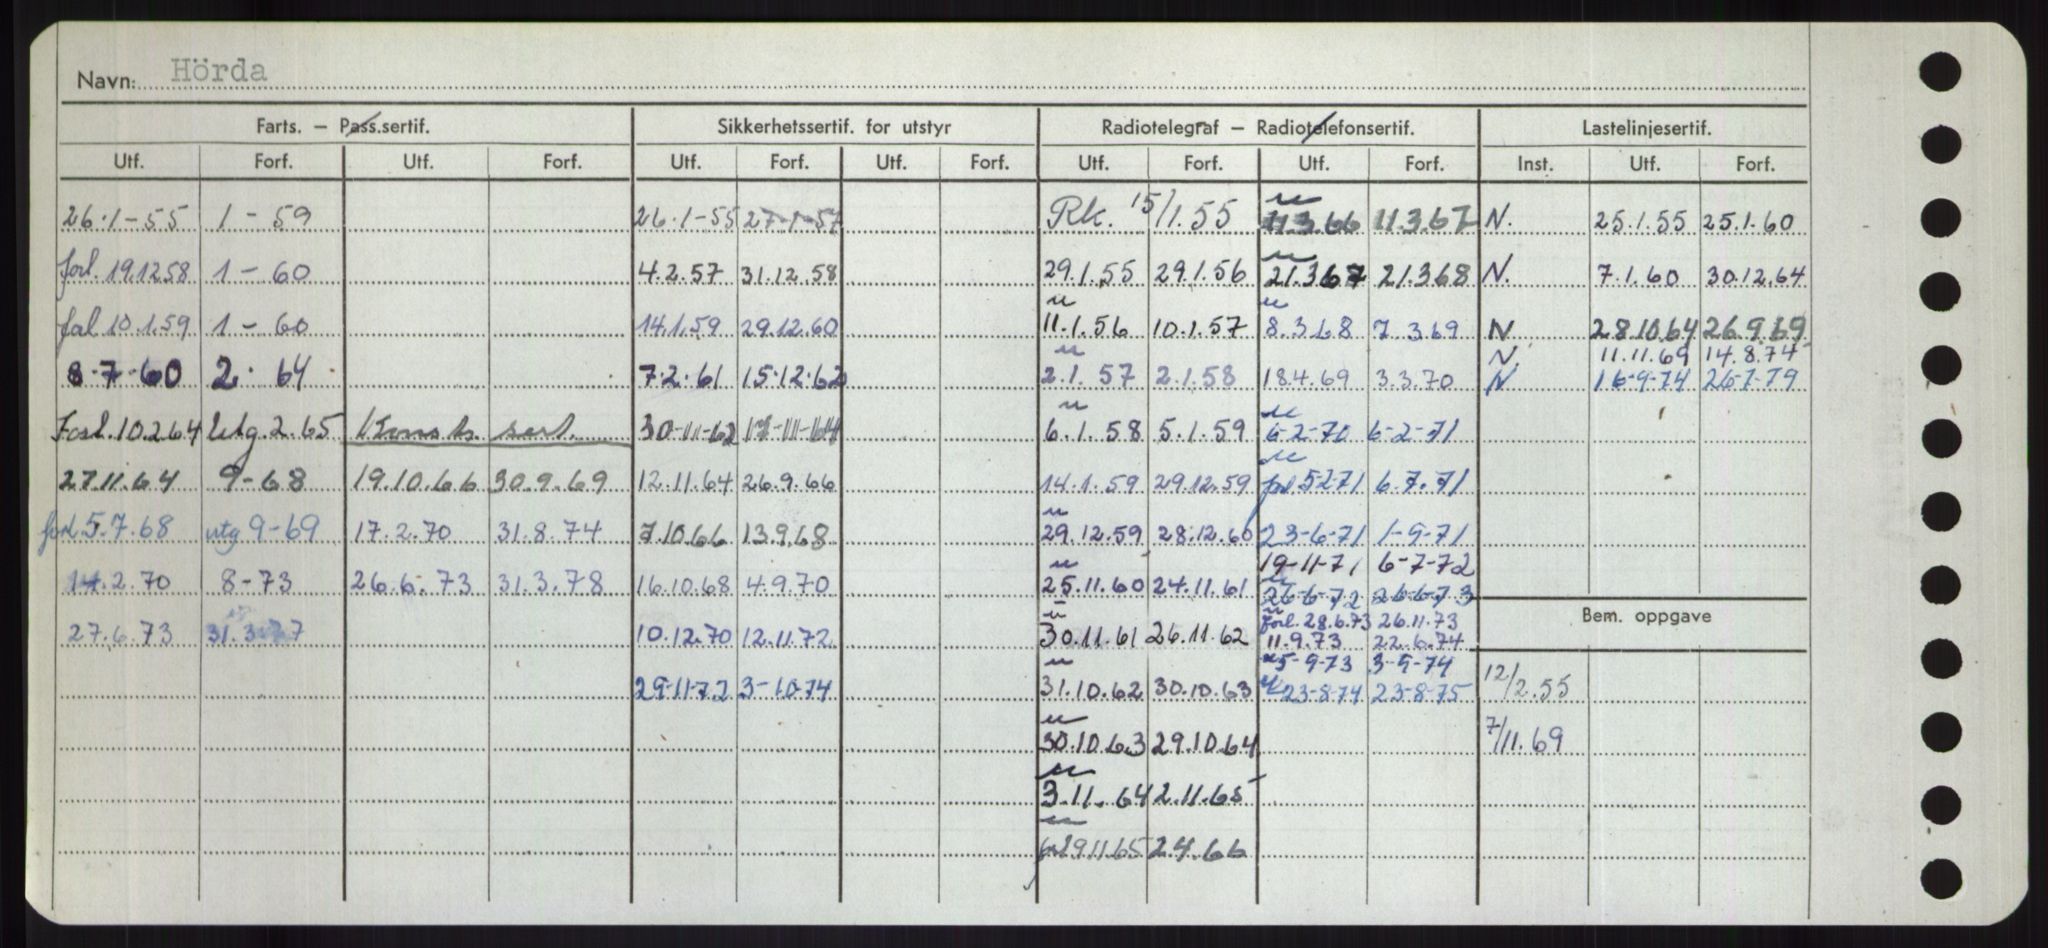 Navn: Hörda
Farts. – Pass.sertif. Sikkerhetssertif. for utstyr Radiotelegraf – Radiotelefonsertif. Lastelinjesertif.
Utf. Forf. Utf. Forf. Utf. Forf. Utf. Forf. Utf. Forf. Utf. Forf. Inst. Utf. Forf.
26.1-55 1-59 26.1-55 27-1-57 Rk. 15/1.55 11.3.66 11.3.67 N. 25.1.55 25.1.60
forl. 19.12.58 1-60 4.2.57 31.12.58 29.1.55 29.1.56 21.3.67 21.3.68 N. 7.1.60 30.12.64
fal 10.1.59 1-60 14.1.59 29.12.60 11.1.56 10.1.57 8.3.68 7.3.69 N 28.10.64 26.9.69
N. 11.11.69 14.8.74
8-7-60 2. 64 7.2.61 15.12.62 2.1.57 2.1.58 18.4.69 3.3.70 N 16-9-74 26-7-79
Forl. 10.2.64 Utg. 2.65 sert. 30-11-62 17-11-64 6.1.58 5.1.59 6-2-70 6-2-71
27.11.64 9-68 19.10.66 30.9.69 12.11.64 26.9.66 14.1.59 29.12.59 forl 5-2-71 6.7.71
forl 5.7.68 utg 9-69 17.2.70 31.8.74 7.10.66 13.9.68 29.12.59 28.12.60 23-6-71 1-9-71
19-11-71 6-7-72
14.2.70 8-73 26.6.73 31.3.78 16.10.68 4.9.70 25.11.60 24.11.61 26-6-72 26-6-73
Bem. oppgave
forl. 28.6.73 26.11.73
27.6.73 31.3.77 10.12.70 12.11.72 30.11.61 26.11.62 11.9.73 22.6.74
5-9-73 3-9-74
29-11-72 3-10-74 31.10.62 30.10.63 23-8-74 23-8-75 12/2.55
30.10.63 29.10.64 7/11.69
3.11.64 2.11.65
29.11.65 2.4.66